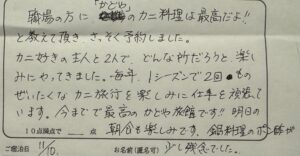 「かどや」
職場の方に のカニ料理は最高だよ!!
と教えて頂き、さっそく予約しました。
カニ好きの主人と2人で、どんな所だろうと、楽し
みにやってきました。毎年、1シーズンで2回もの
ぜいたくなカニ旅行を楽しみに仕事を頑張って
います。今までで最高のかどや旅館です!! 明日の
10点満点で 点 朝食も楽しみです。鍋料理の が
ご宿泊日 11/10. お名前(匿名可) 少し残念でした。